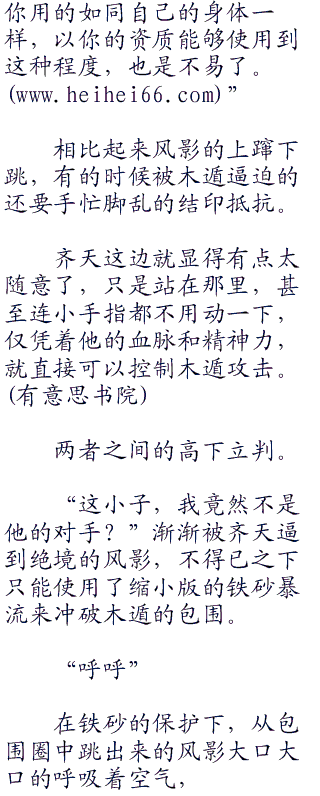 你用的如同自己的身体一
样，以你的资质能够使用到
这种程度，也是不易了。
(www.heihei66.com)”
相比起来风影的上蹿下
跳，有的时候被木遁逼迫的
还要手忙脚乱的结印抵抗。
齐天这边就显得有点太
随意了，只是站在那里，甚
至连小手指都不用动一下，
仅凭着他的血脉和精神力，
就直接可以控制木遁攻击。
(有意思书院)
两者之间的高下立判。
“这小子，我竟然不是
他的对手？”渐渐被齐天逼
到绝境的风影，不得已之下
只能使用了缩小版的铁砂暴
流来冲破木遁的包围。
“呼呼”
在铁砂的保护下，从包
围圈中跳出来的风影大口大
口的呼吸着空气，